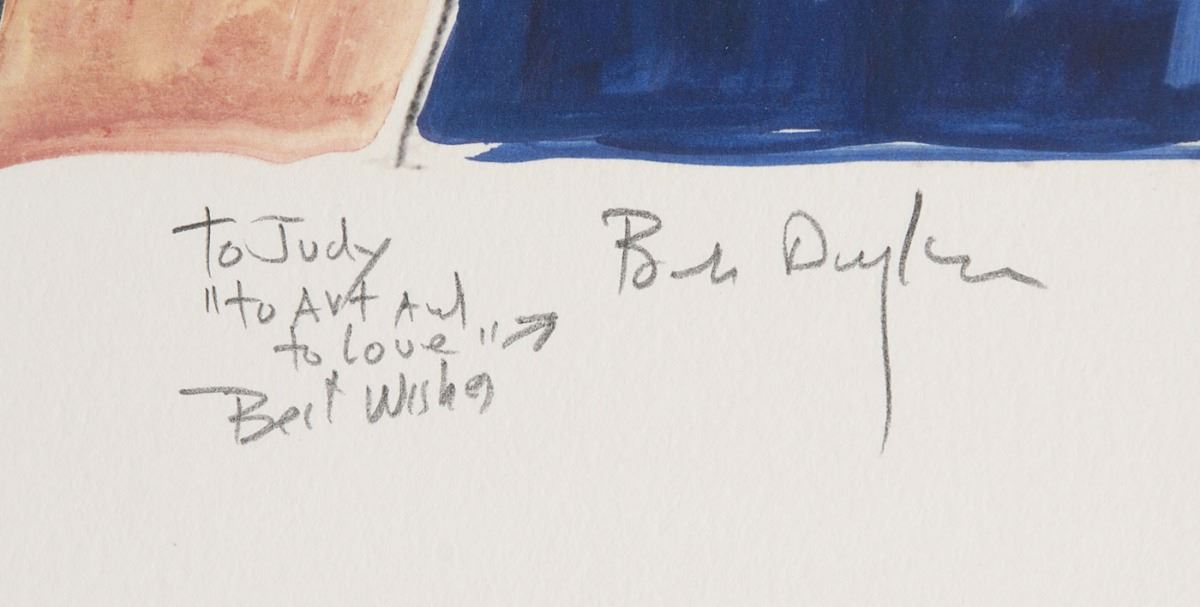 To Judy
"to Art and
to love" →
Best Wishes
Bob Dylan